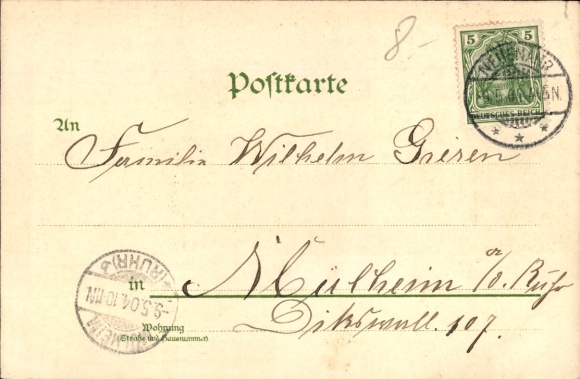 8.-
5 5
NEUENAHR
DEUTSCHES REICH
* * *
Postkarte
An
Familie Wilhelm Gieren
in Mülheim a/d. Ruhr
Dikswall 107.
Wohnung
(Straße und Hausnummer)
(RUHR)
5.04.10-11N.